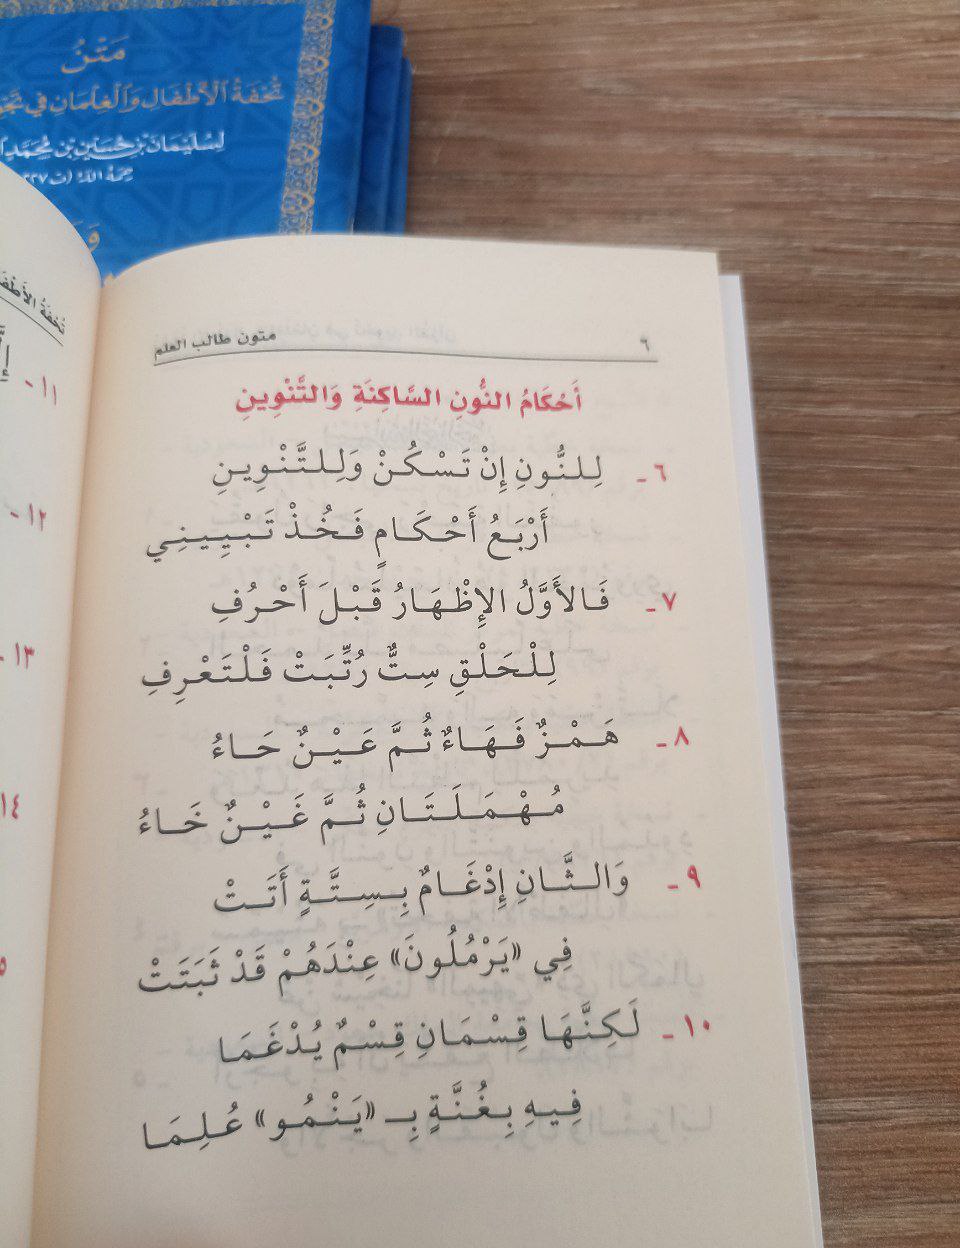 مَتْنُ
تُحْفَةُ الْأَطْفَالِ وَالْغِلْمَانِ فِي
لِسُلَيْمَانَ بْنِ حُسَيْنِ بْنِ مُحَمَّدٍ
تُحْفَةُ
١١ -
١٢ -
١٣ -
١٤
٦
متون طالب العلم
أَحْكَامُ النُّونِ السَّاكِنَةِ وَالتَّنْوِينِ
٦ - لِلنُّونِ إِنْ تَسْكُنْ وَلِلتَّنْوِينِ
أَرْبَعُ أَحْكَامٍ فَخُذْ تَبْيِينِي
٧ - فَالأَوَّلُ الإِظْهَارُ قَبْلَ أَحْرُفِ
لِلْحَلْقِ سِتٌّ رُتِّبَتْ فَلْتَعْرِفِ
٨ - هَمْزٌ فَهَاءٌ ثُمَّ عَيْنٌ حَاءُ
مُهْمَلَتَانِ ثُمَّ غَيْنٌ خَاءُ
٩ - وَالثَّانِ إِدْغَامٌ بِسِتَّةٍ أَتَتْ
فِي «يَرْمُلُونَ» عِنْدَهُمْ قَدْ ثَبَتَتْ
١٠ - لَكِنَّهَا قِسْمَانِ قِسْمٌ يُدْغَمَا
فِيهِ بِغُنَّةٍ بِـ «يَنْمُو» عُلِمَا